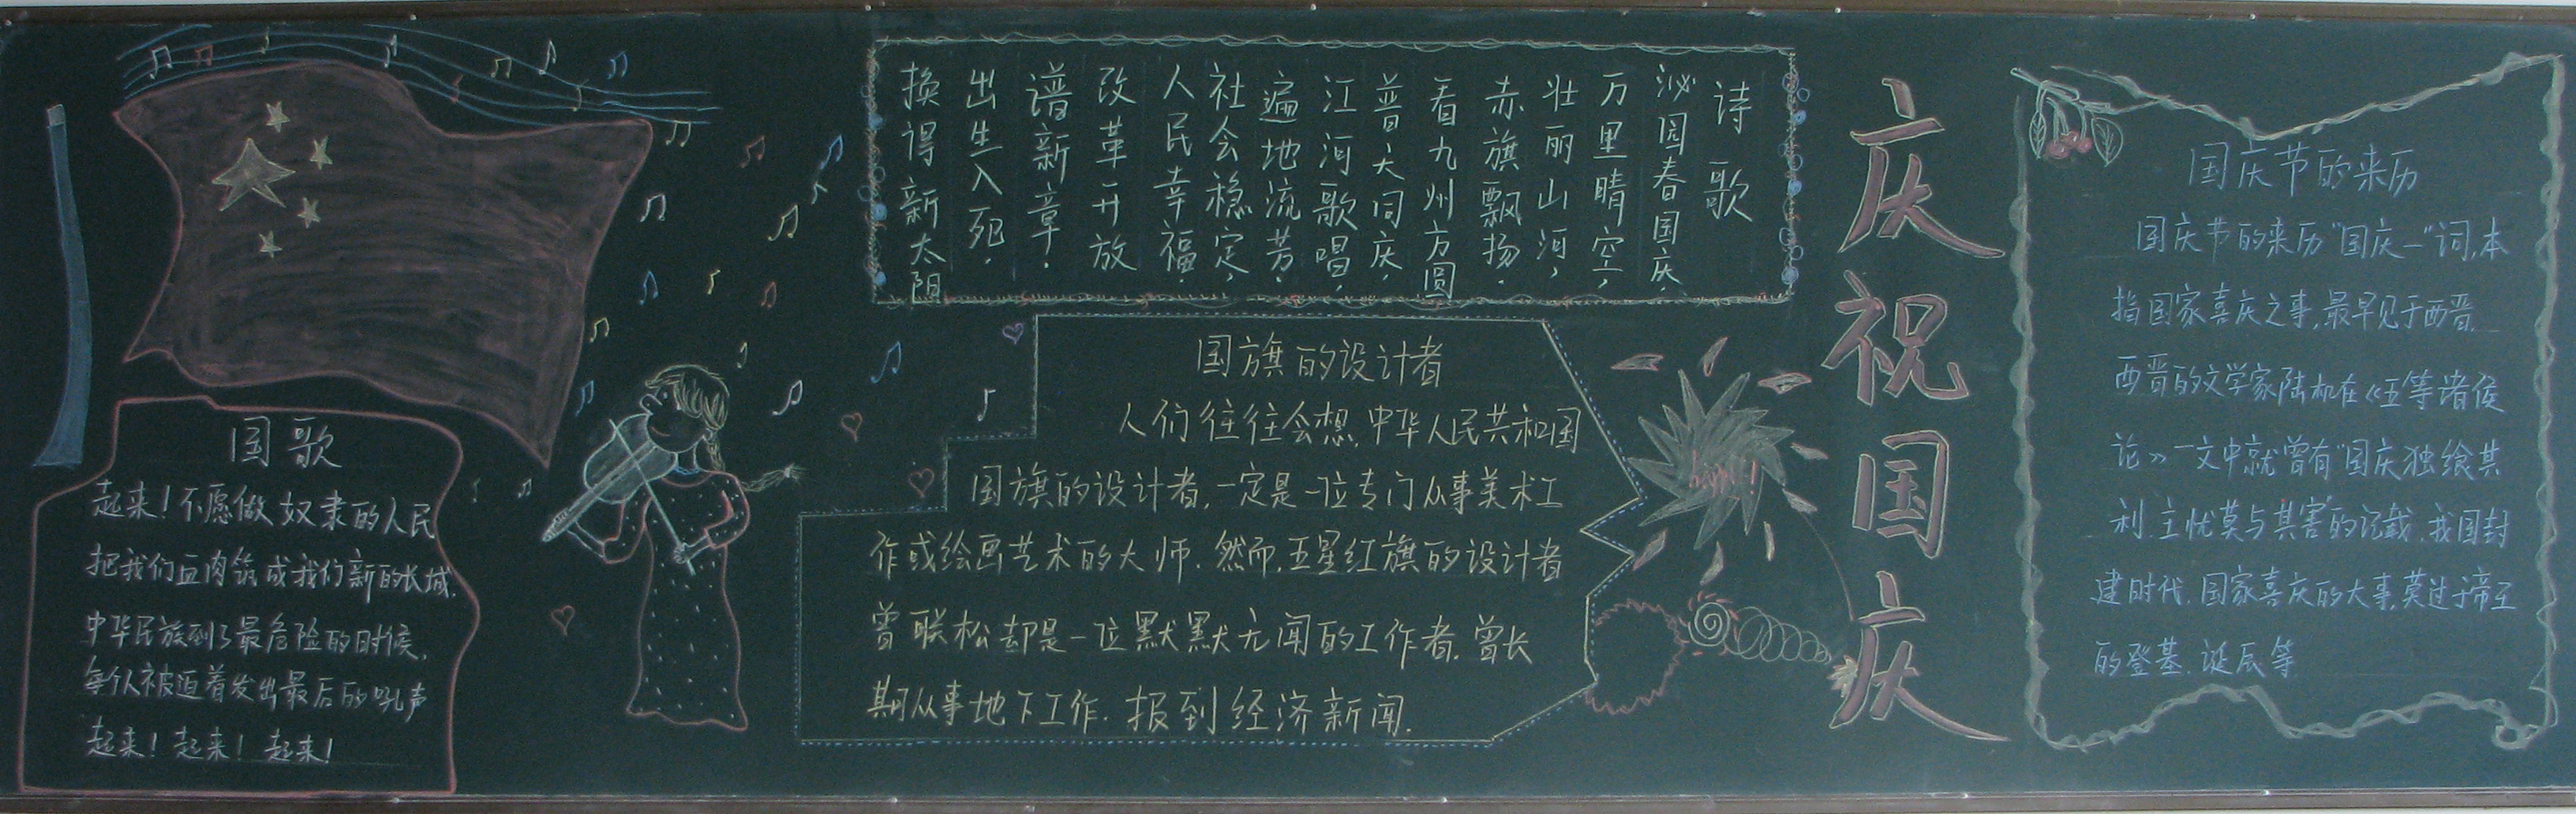 国歌
起来！不愿做奴隶的人民
把我们血肉筑成我们新的长城.
中华民族到了最危险的时候.
每个人被迫着发出最后的吼声
起来！起来！起来！
诗歌
沁园春国庆.
万里晴空，
壮丽山河，
赤旗飘扬.
看九州方圆
普大同庆，
江河歌唱，
遍地流芳.
社会稳定，
人民幸福.
改革开放
谱新章.
出生入死.
换得新太阳
国旗的设计者
人们往往会想.中华人民共和国
国旗的设计者,一定是一位专门从事美术工
作或绘画艺术的大师.然而.五星红旗的设计者
曾联松却是一位默默无闻的工作者.曾长
期从事地下工作.报到经济新闻.
庆祝国庆
国庆节的来历
国庆节的来历"国庆一"词,本
指国家喜庆之事,最早见于西晋.
西晋的文学家陆机在《五等诸侯
论》一文中就曾有"国庆独飨其
利.主忧莫与其害的记载.我国封
建时代.国家喜庆的大事,莫过于帝王
的登基.诞辰等